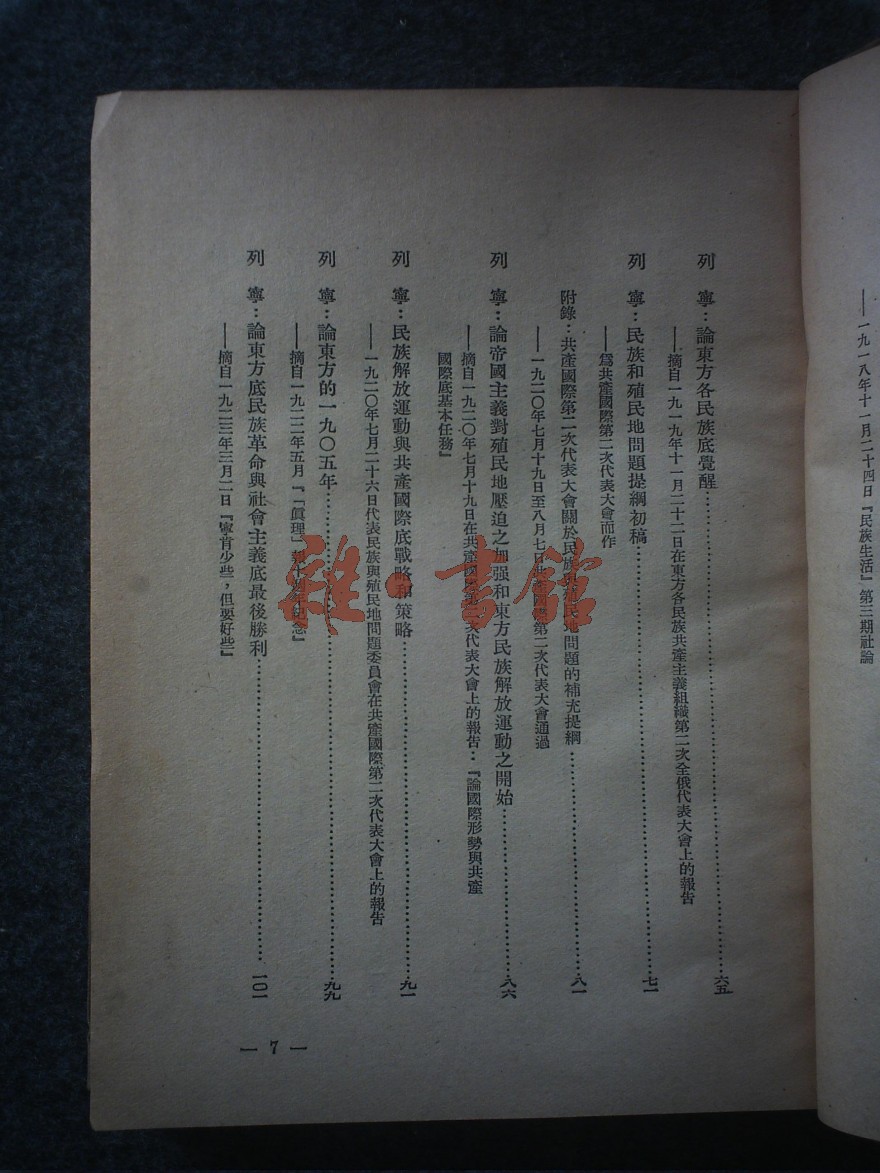 ——一九一八年十一月二十四日『民族生活』第三期社論
列　寧：論東方各民族底覺醒……六五
——摘自一九一九年十一月二十二日在東方各民族共產主義組織第二次全俄代表大會上的報告
列　寧：民族和殖民地問題提綱初稿……七一
——爲共產國際第二次代表大會而作
附錄：共產國際第二次代表大會關於民族與殖民地問題的補充提綱……八一
——一九二〇年七月十九日至八月七日共產國際第二次代表大會通過
列　寧：論帝國主義對殖民地壓迫之加强和東方民族解放運動之開始……八六
——摘自一九二〇年七月十九日在共產國際第二次代表大會上的報告：『論國際形勢與共產
國際底基本任務』
列　寧：民族解放運動與共產國際底戰略和策略……九一
——一九二〇年七月二十六日代表民族與殖民地問題委員會在共產國際第二次代表大會上的報告
列　寧：論東方的一九〇五年……九九
——摘自一九二二年五月『「眞理」報十週年紀念』
列　寧：論東方底民族革命與社會主義底最後勝利……一〇一
——摘自一九二三年三月二日『寧肯少些，但要好些』
— 7 —
雜·書館